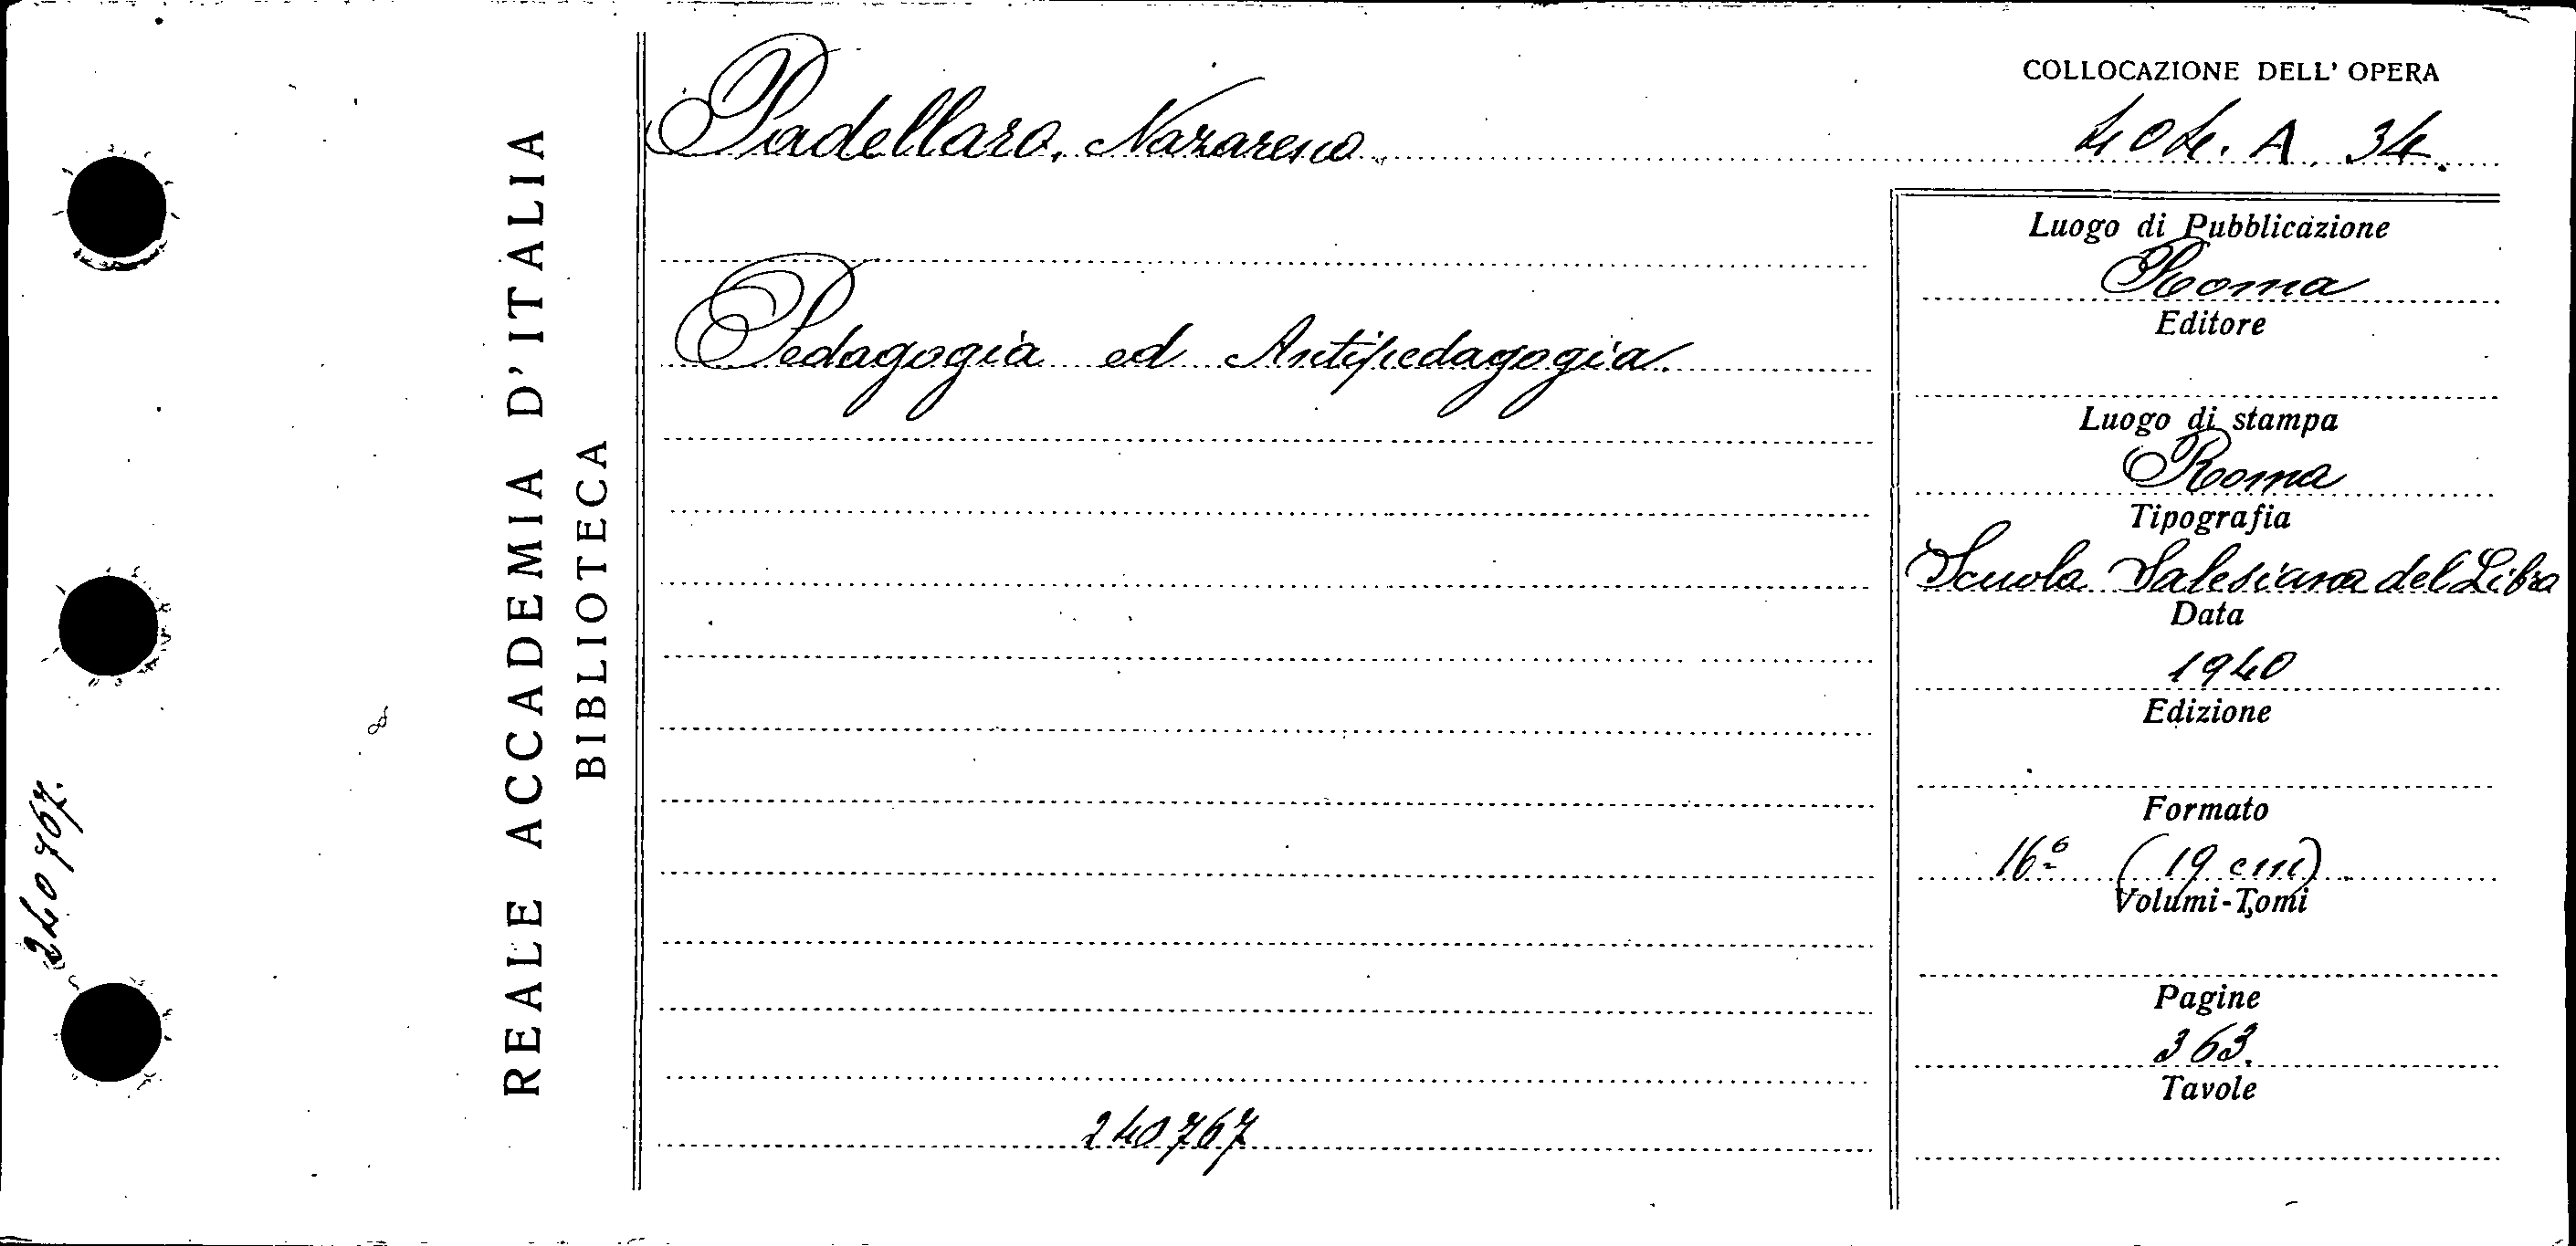 240767.
REALE ACCADEMIA D'ITALIA
BIBLIOTECA
Padellaro, Nazareno
Pedagogia ed Antipedagogia.
240767
COLLOCAZIONE DELL' OPERA
404. A. 34.
Luogo di Pubblicazione
Roma
Editore
Luogo di stampa
Roma
Tipografia
Scuola Salesiana del Libro
Data
1940
Edizione
Formato
16º (19 cm)
Volumi-Tomi
Pagine
363.
Tavole